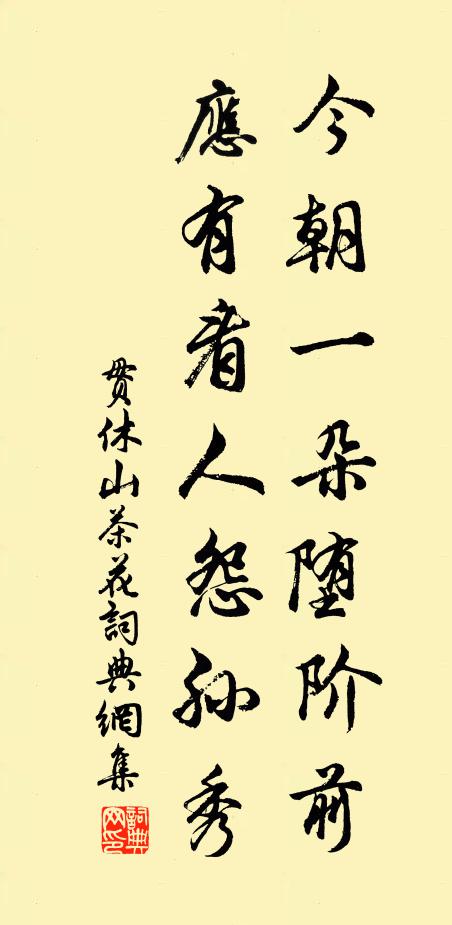 今朝一朵堕阶前
應有看人怨孙秀
贯休山茶花詞典網集
詞典网印